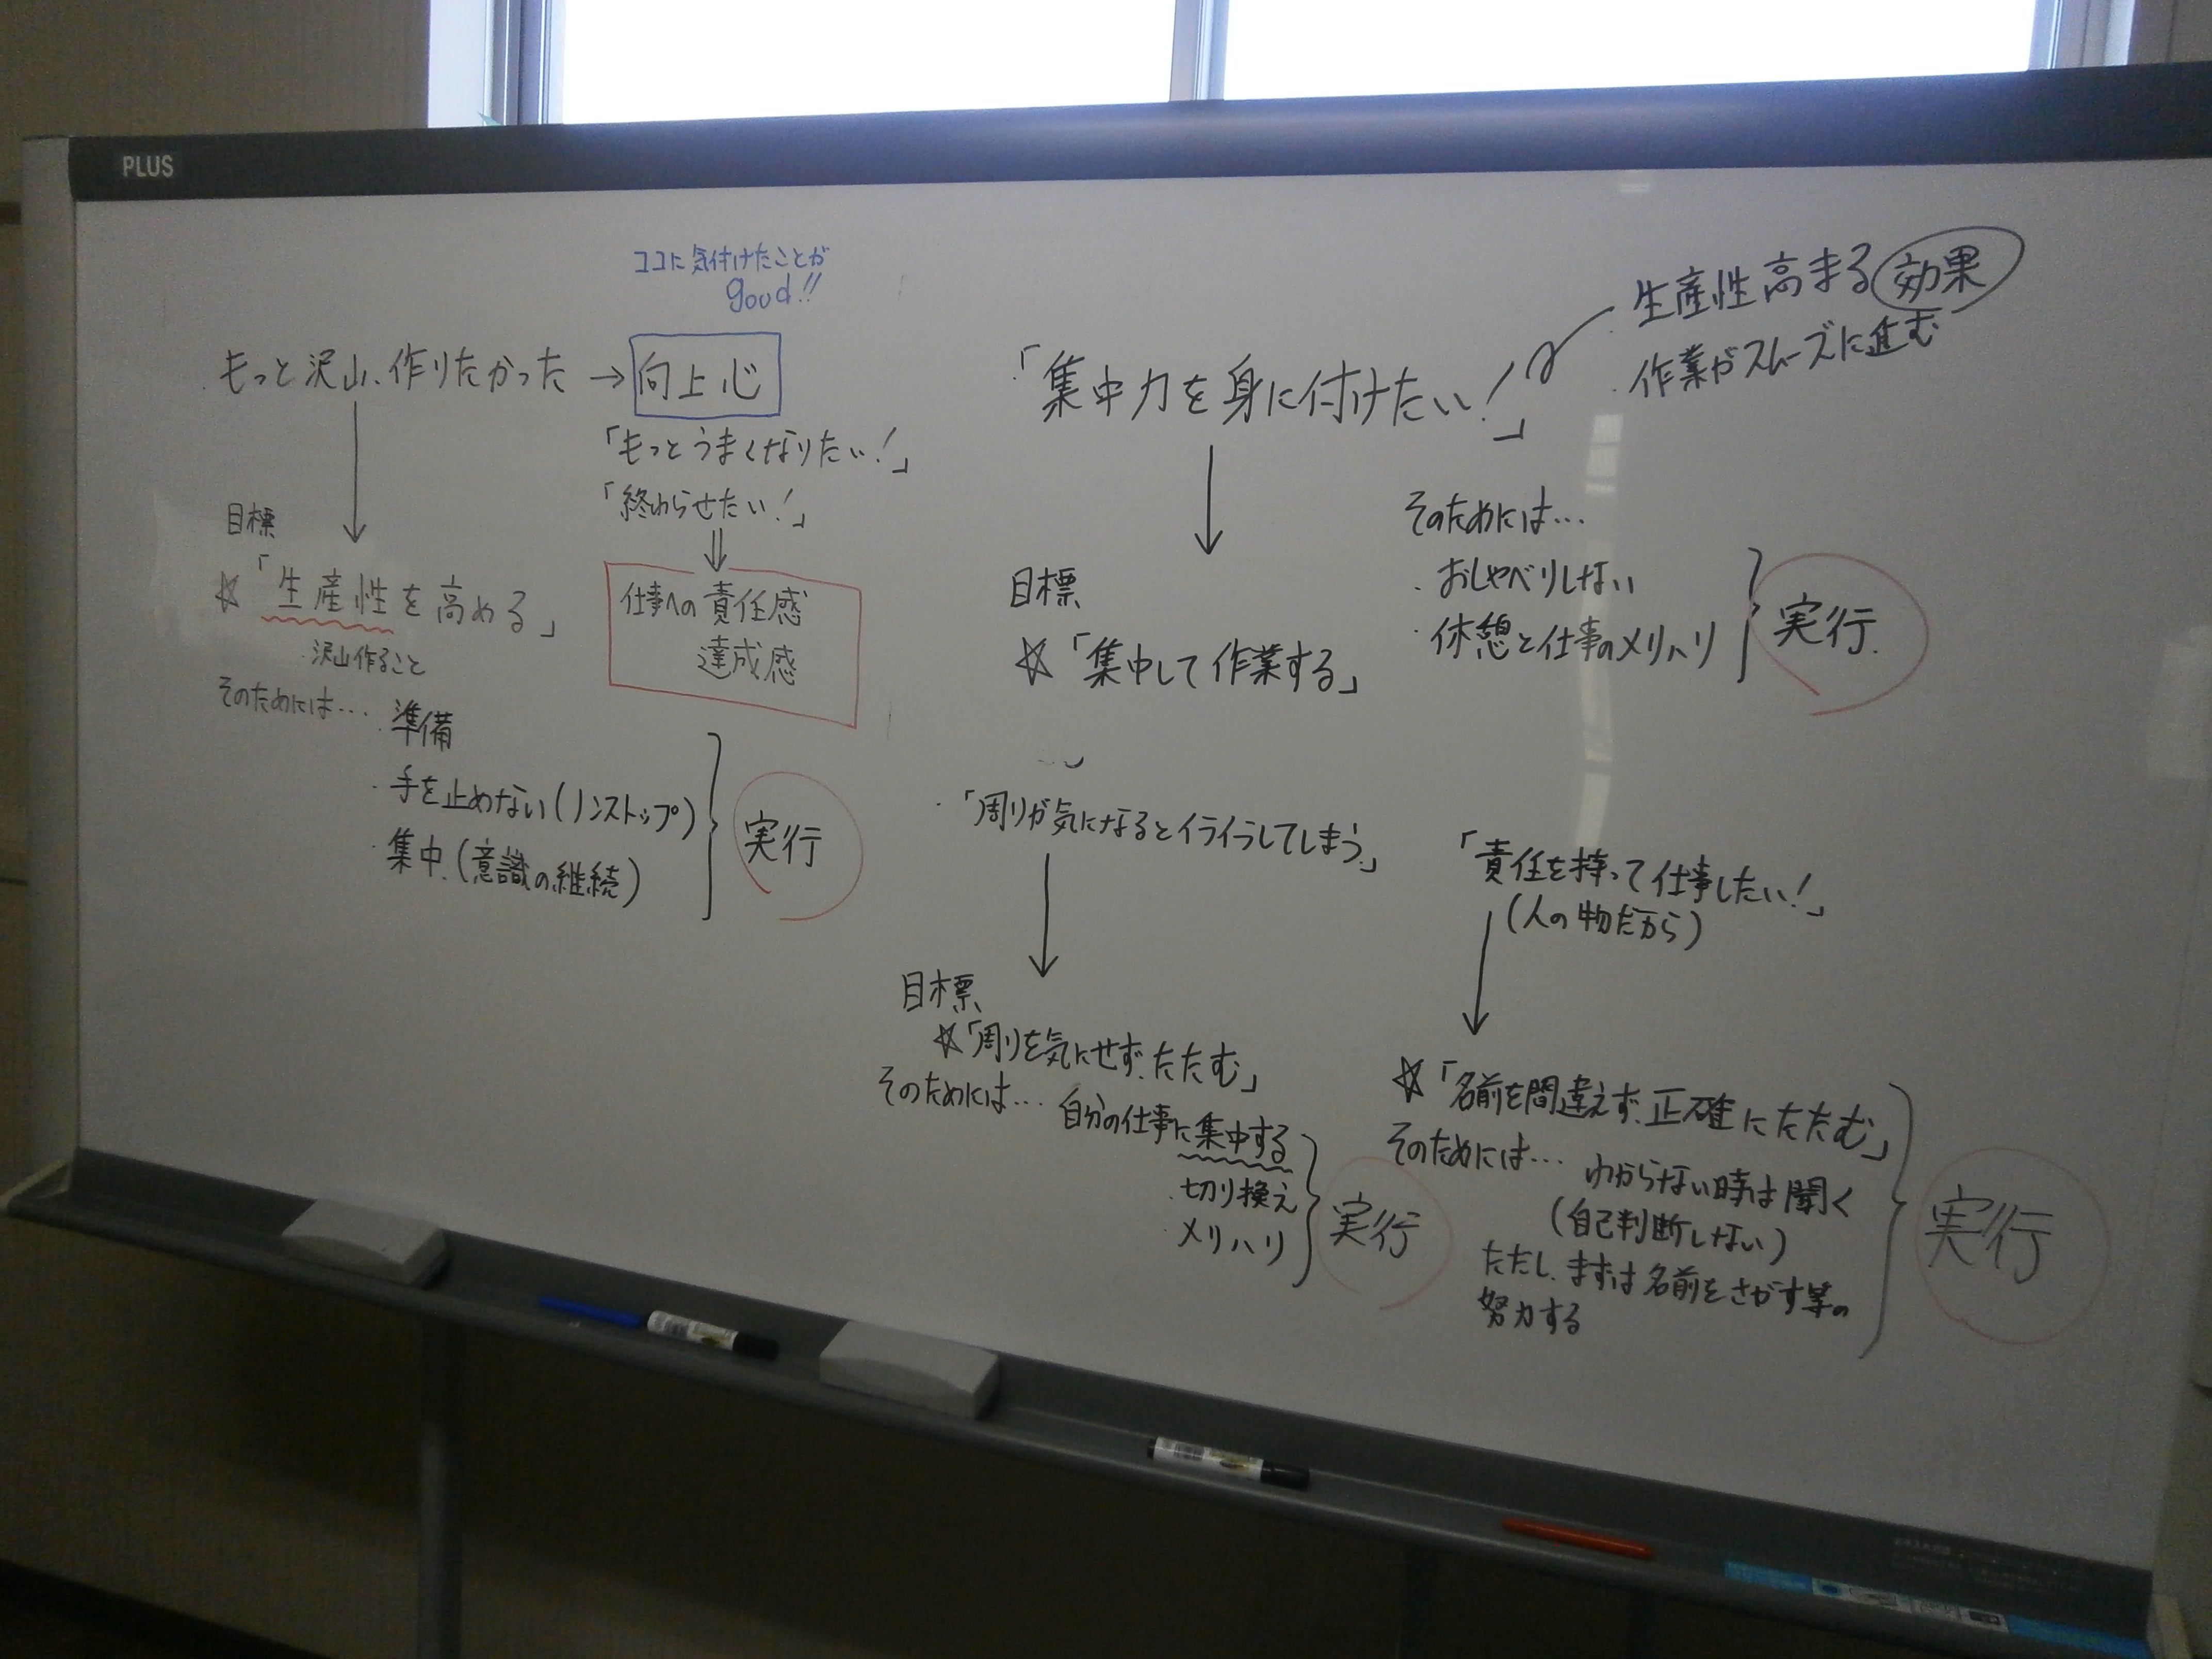 PLUS
ココに気付けたことが
good!!
・もっと沢山、作りたかった → 向上心
「もっとうまくなりたい!」
「終わらせたい!」
⇓
仕事への責任感
達成感
↓
目標
☆「生産性を高める」
・沢山作ること
そのためには…
・準備
・手を止めない(ノンストップ)
・集中.(意識の継続)
実行
・「集中力を身に付けたい!」
・生産性高まる 効果
・作業がスムーズに進む
↓
目標
☆「集中して作業する」
そのためには…
・おしゃべりしない
・休憩と仕事のメリハリ
実行.
・「周りが気になるとイライラしてしまう。」
↓
目標
☆「周りを気にせず、たたむ」
そのためには…
自分の仕事に集中する
・切り換え
・メリハリ
実行
「責任を持って仕事したい!」
(人の物だから)
↓
☆「名前を間違えず、正確にたたむ」
そのためには…
わからない時は聞く
(自己判断しない)
ただし、まずは名前をさがす等の
努力する
実行